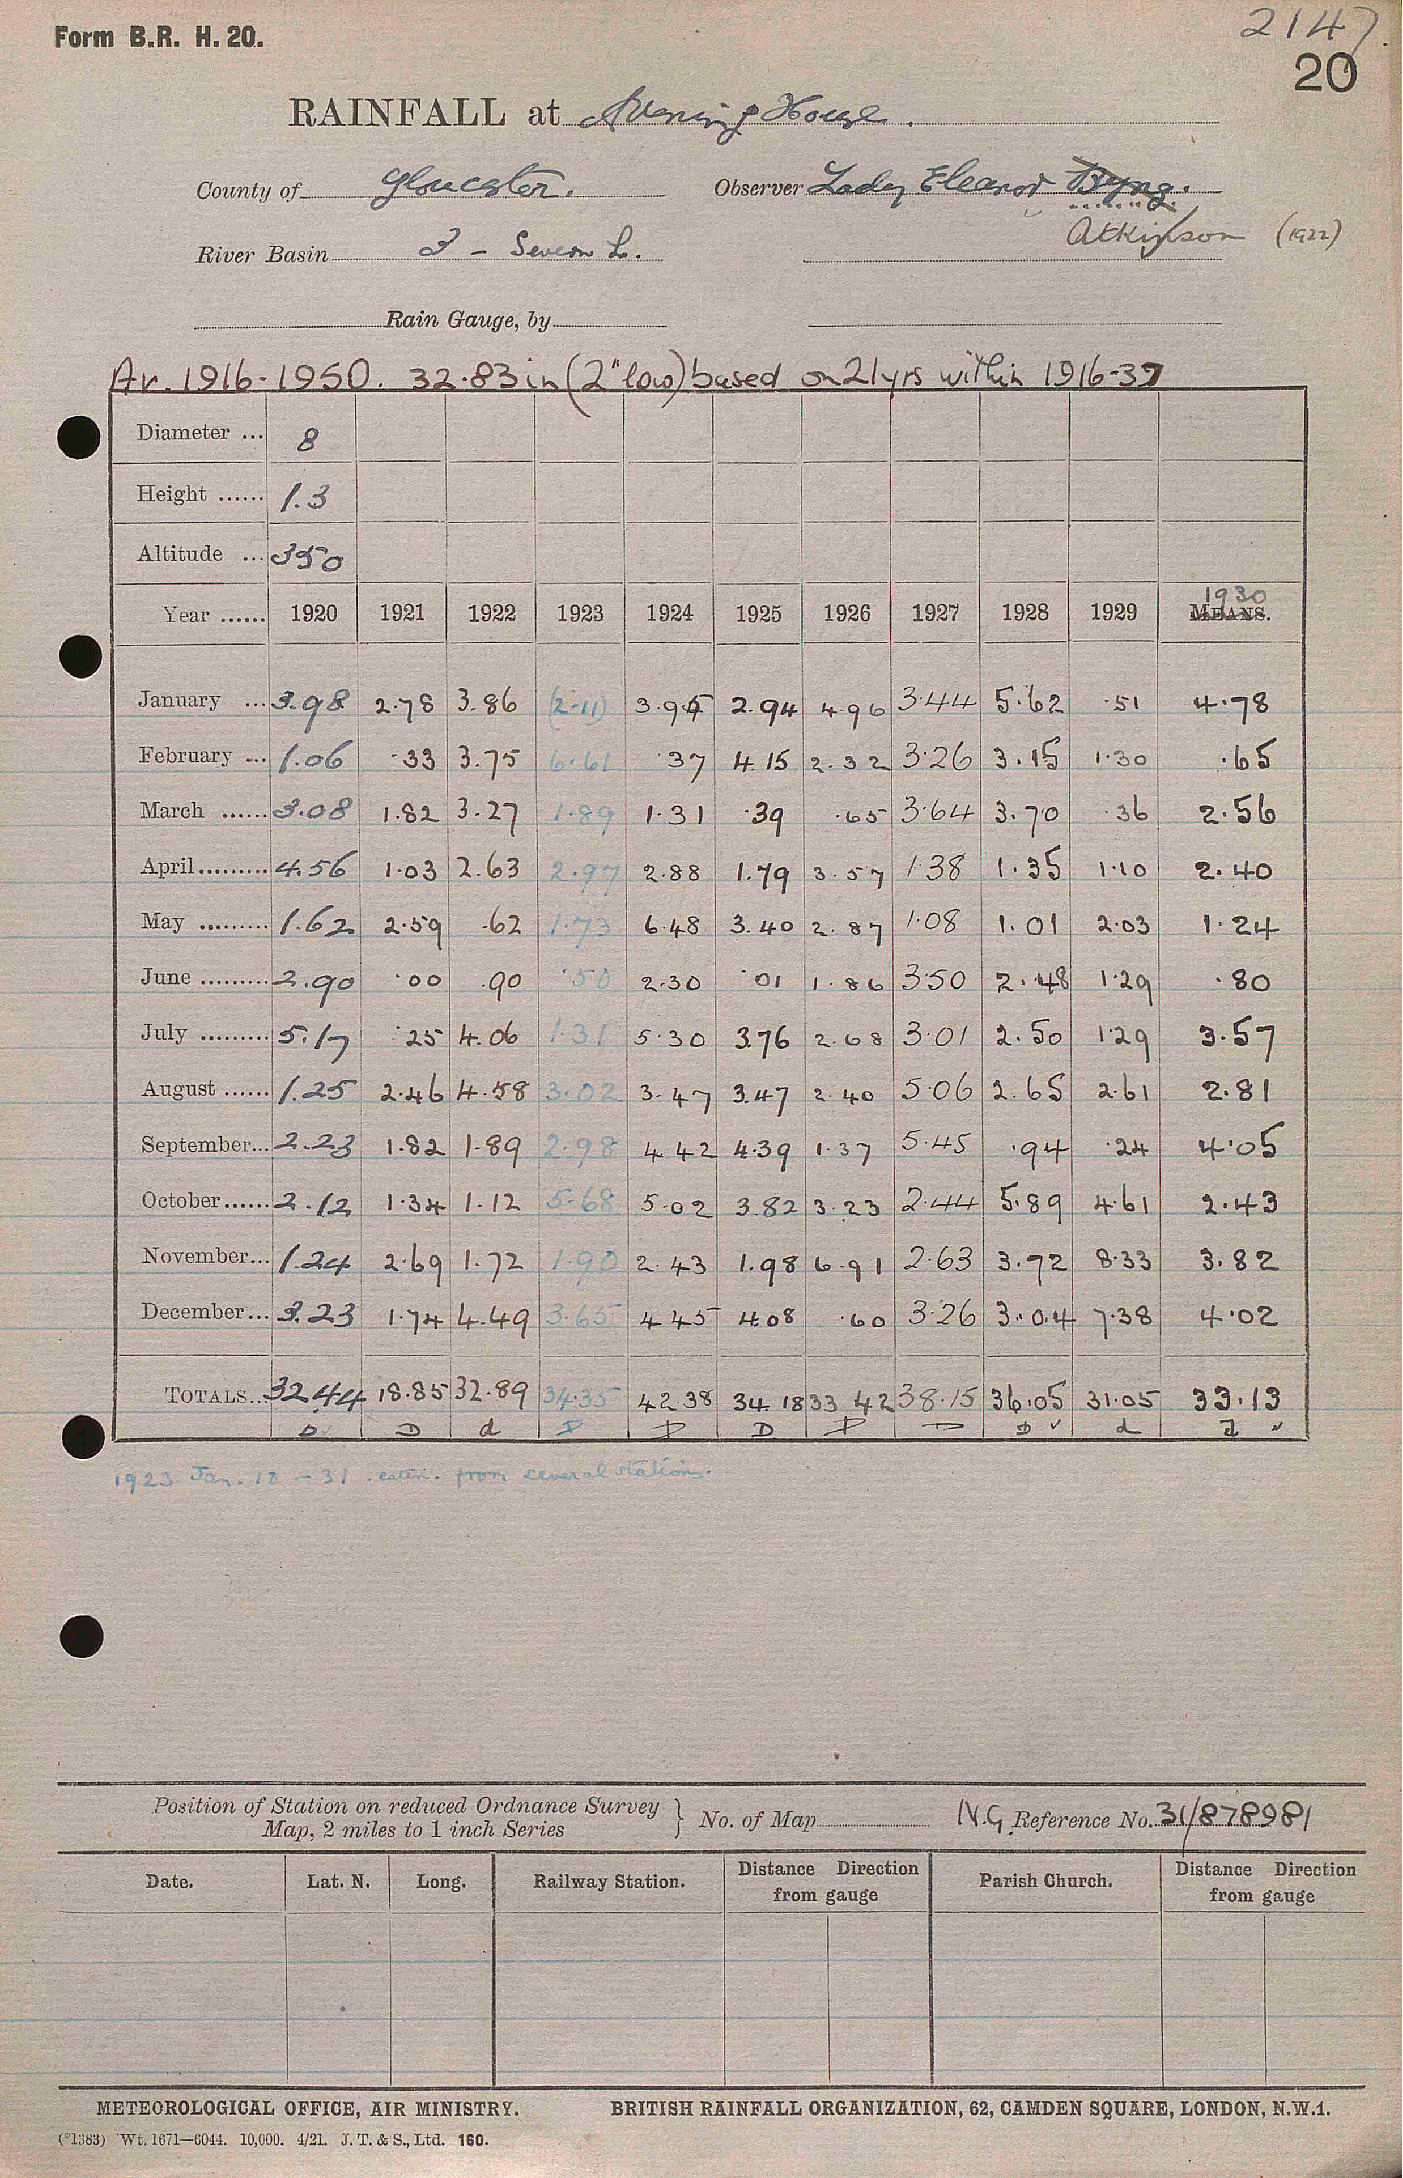 Form B.R. H. 20.
2147.
20
RAINFALL at Avening House.
County of Gloucester.
Observer Lady Eleanor Byng.
Atkinson (1922)
River Basin 3 - Severn L.
Rain Gauge, by
Av. 1916-1950. 32.83 in (2" low) based on 21 yrs within 1916-37
Diameter ... 8
Height ...... 1.3
Altitude ... 350
Year ...... 1920 1921 1922 1923 1924 1925 1926 1927 1928 1929 MEANS. 1930
January ... 3.98 2.78 3.86 (2.11) 3.95 2.94 4.96 3.44 5.62 .51 4.78
February ... 1.06 .33 3.75 6.61 .37 4.15 2.32 3.26 3.15 1.30 .65
March ...... 3.08 1.82 3.27 1.89 1.31 .39 .65 3.64 3.70 .36 2.56
April......... 4.56 1.03 2.63 2.97 2.88 1.79 3.57 1.38 1.35 1.10 2.40
May ......... 1.62 2.59 .62 1.73 6.48 3.40 2.87 1.08 1.01 2.03 1.24
June ......... 2.90 .00 .90 .50 2.30 .01 1.86 3.50 2.48 1.29 .80
July ......... 5.17 .25 4.06 1.31 5.30 3.76 2.68 3.01 2.50 1.29 3.57
August ...... 1.25 2.46 4.58 3.02 3.47 3.47 2.40 5.06 2.65 2.61 2.81
September... 2.23 1.82 1.89 2.98 4.42 4.39 1.37 5.45 .94 .24 4.05
October...... 2.12 1.34 1.12 5.68 5.02 3.82 3.23 2.44 5.89 4.61 2.43
November... 1.24 2.69 1.72 1.90 2.43 1.98 6.91 2.63 3.72 8.33 3.82
December... 3.23 1.74 4.49 3.65 4.45 4.08 .60 3.26 3.04 7.38 4.02
TOTALS... 32.44 18.85 32.89 34.35 42.38 34.18 33.42 38.15 36.05 31.05 33.13
D D d D D D D D d
1923 Jan. 18 - 31 estim. from several stations.
Position of Station on reduced Ordnance Survey
Map, 2 miles to 1 inch Series } No. of Map N.G. Reference No. 31/878981
Date. Lat. N. Long. Railway Station. Distance Direction from gauge Parish Church. Distance Direction from gauge
METEOROLOGICAL OFFICE, AIR MINISTRY. BRITISH RAINFALL ORGANIZATION, 62, CAMDEN SQUARE, LONDON, N.W.1.
(*1383) Wt. 1671—6044. 10,000. 4/21. J. T. & S., Ltd. 160.